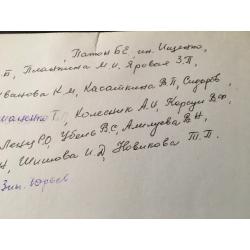 Патон Б.Е, ин. Ищенко,
П, Плашкина М.И, Яровая З.П,
иванова К.М, Касаткина В.П, Сидоров,
маненко Т.Г, Колесник А.И, Корсун В.Ф,
Лещу Р.О, Убень В.С, Амелуева В.Н,
Н, Шишова И.Д, Новикова Т.П.
Зин. Юрьев